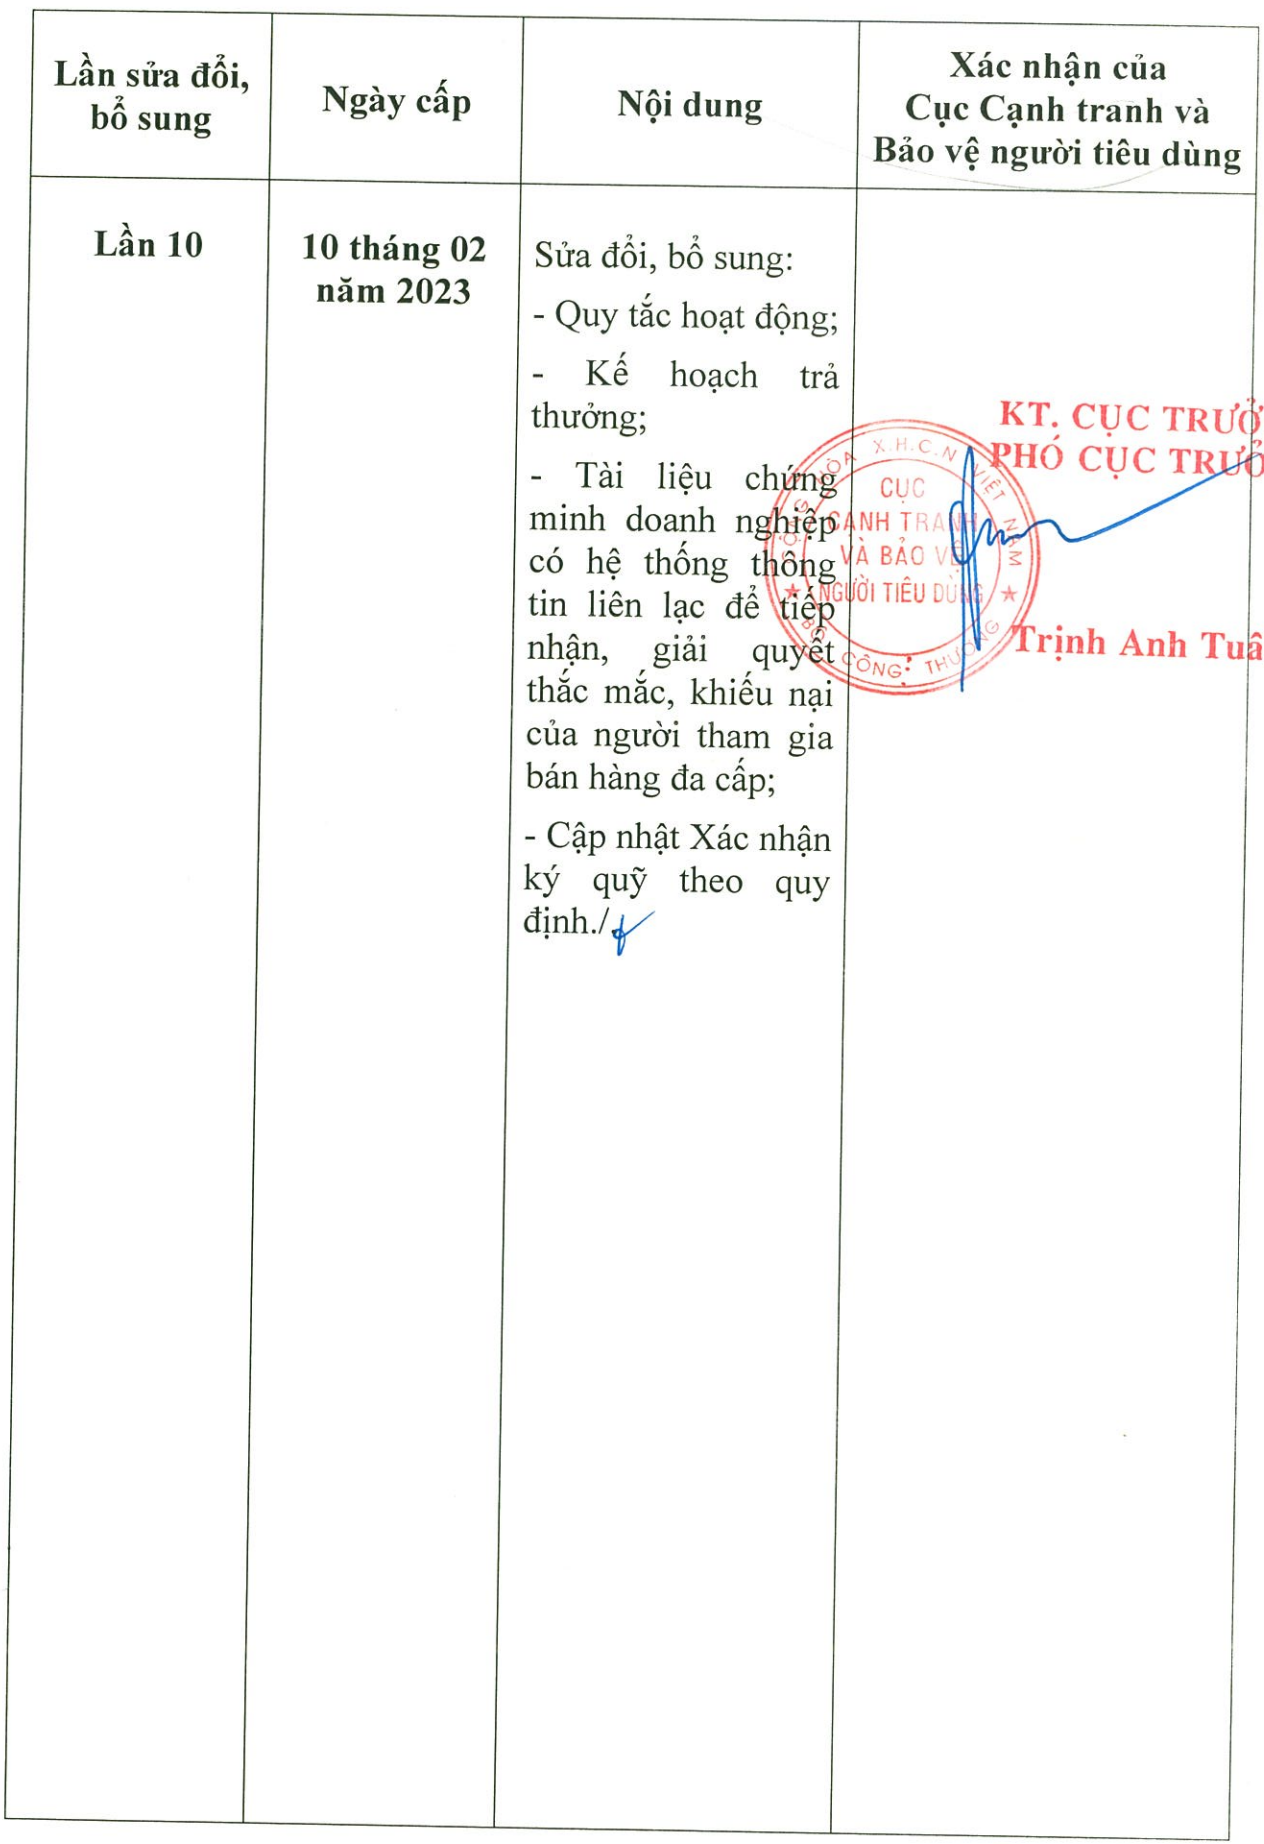 Lần sửa đổi,
bổ sung
Ngày cấp
Nội dung
Xác nhận của
Cục Cạnh tranh và
Bảo vệ người tiêu dùng
Lần 10
10 tháng 02
năm 2023
Sửa đổi, bổ sung:
- Quy tắc hoạt động;
- Kế hoạch trả
thưởng;
- Tài liệu chứng
minh doanh nghiệp
có hệ thống thông
tin liên lạc để tiếp
nhận, giải quyết
thắc mắc, khiếu nại
của người tham gia
bán hàng đa cấp;
- Cập nhật Xác nhận
ký quỹ theo quy
định./.
KT. CỤC TRƯỞ
PHÓ CỤC TRƯỞ
CỘNG HÒA X.H.C.N VIỆT NAM
CỤC
CẠNH TRANH
VÀ BẢO VỆ
NGƯỜI TIÊU DÙNG
BỘ CÔNG THƯƠNG
Trịnh Anh Tuấ